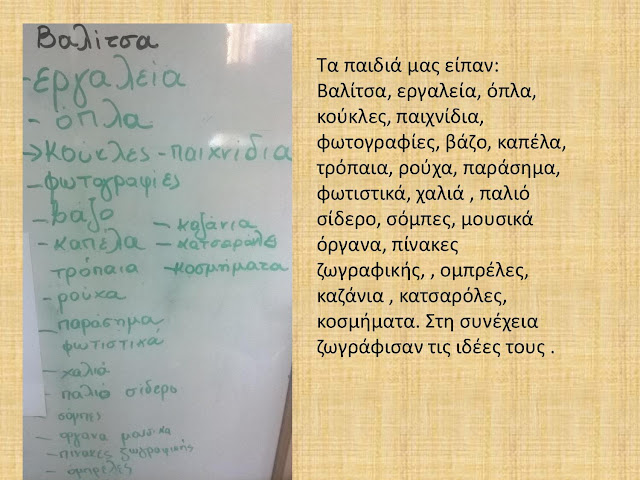 Βαλίτσα
-εργαλεία
- όπλα
→κούκλες -παιχνίδια
-φωτογραφίες
-βάζο
- καζάνια
- καπέλα
- κατσαρόλες
τρόπαια
-κοσμήματα
- ρούχα
- παράσημα
φωτιστικά
- χαλιά
- παλιό σίδερο
σόμπες
- όργανα μουσικά
-πίνακες ζωγραφικής
- ομπρέλες
Τα παιδιά μας είπαν:
Βαλίτσα, εργαλεία, όπλα,
κούκλες, παιχνίδια,
φωτογραφίες, βάζο, καπέλα,
τρόπαια, ρούχα, παράσημα,
φωτιστικά, χαλιά , παλιό
σίδερο, σόμπες, μουσικά
όργανα, πίνακες
ζωγραφικής, , ομπρέλες,
καζάνια , κατσαρόλες,
κοσμήματα. Στη συνέχεια
ζωγράφισαν τις ιδέες τους .